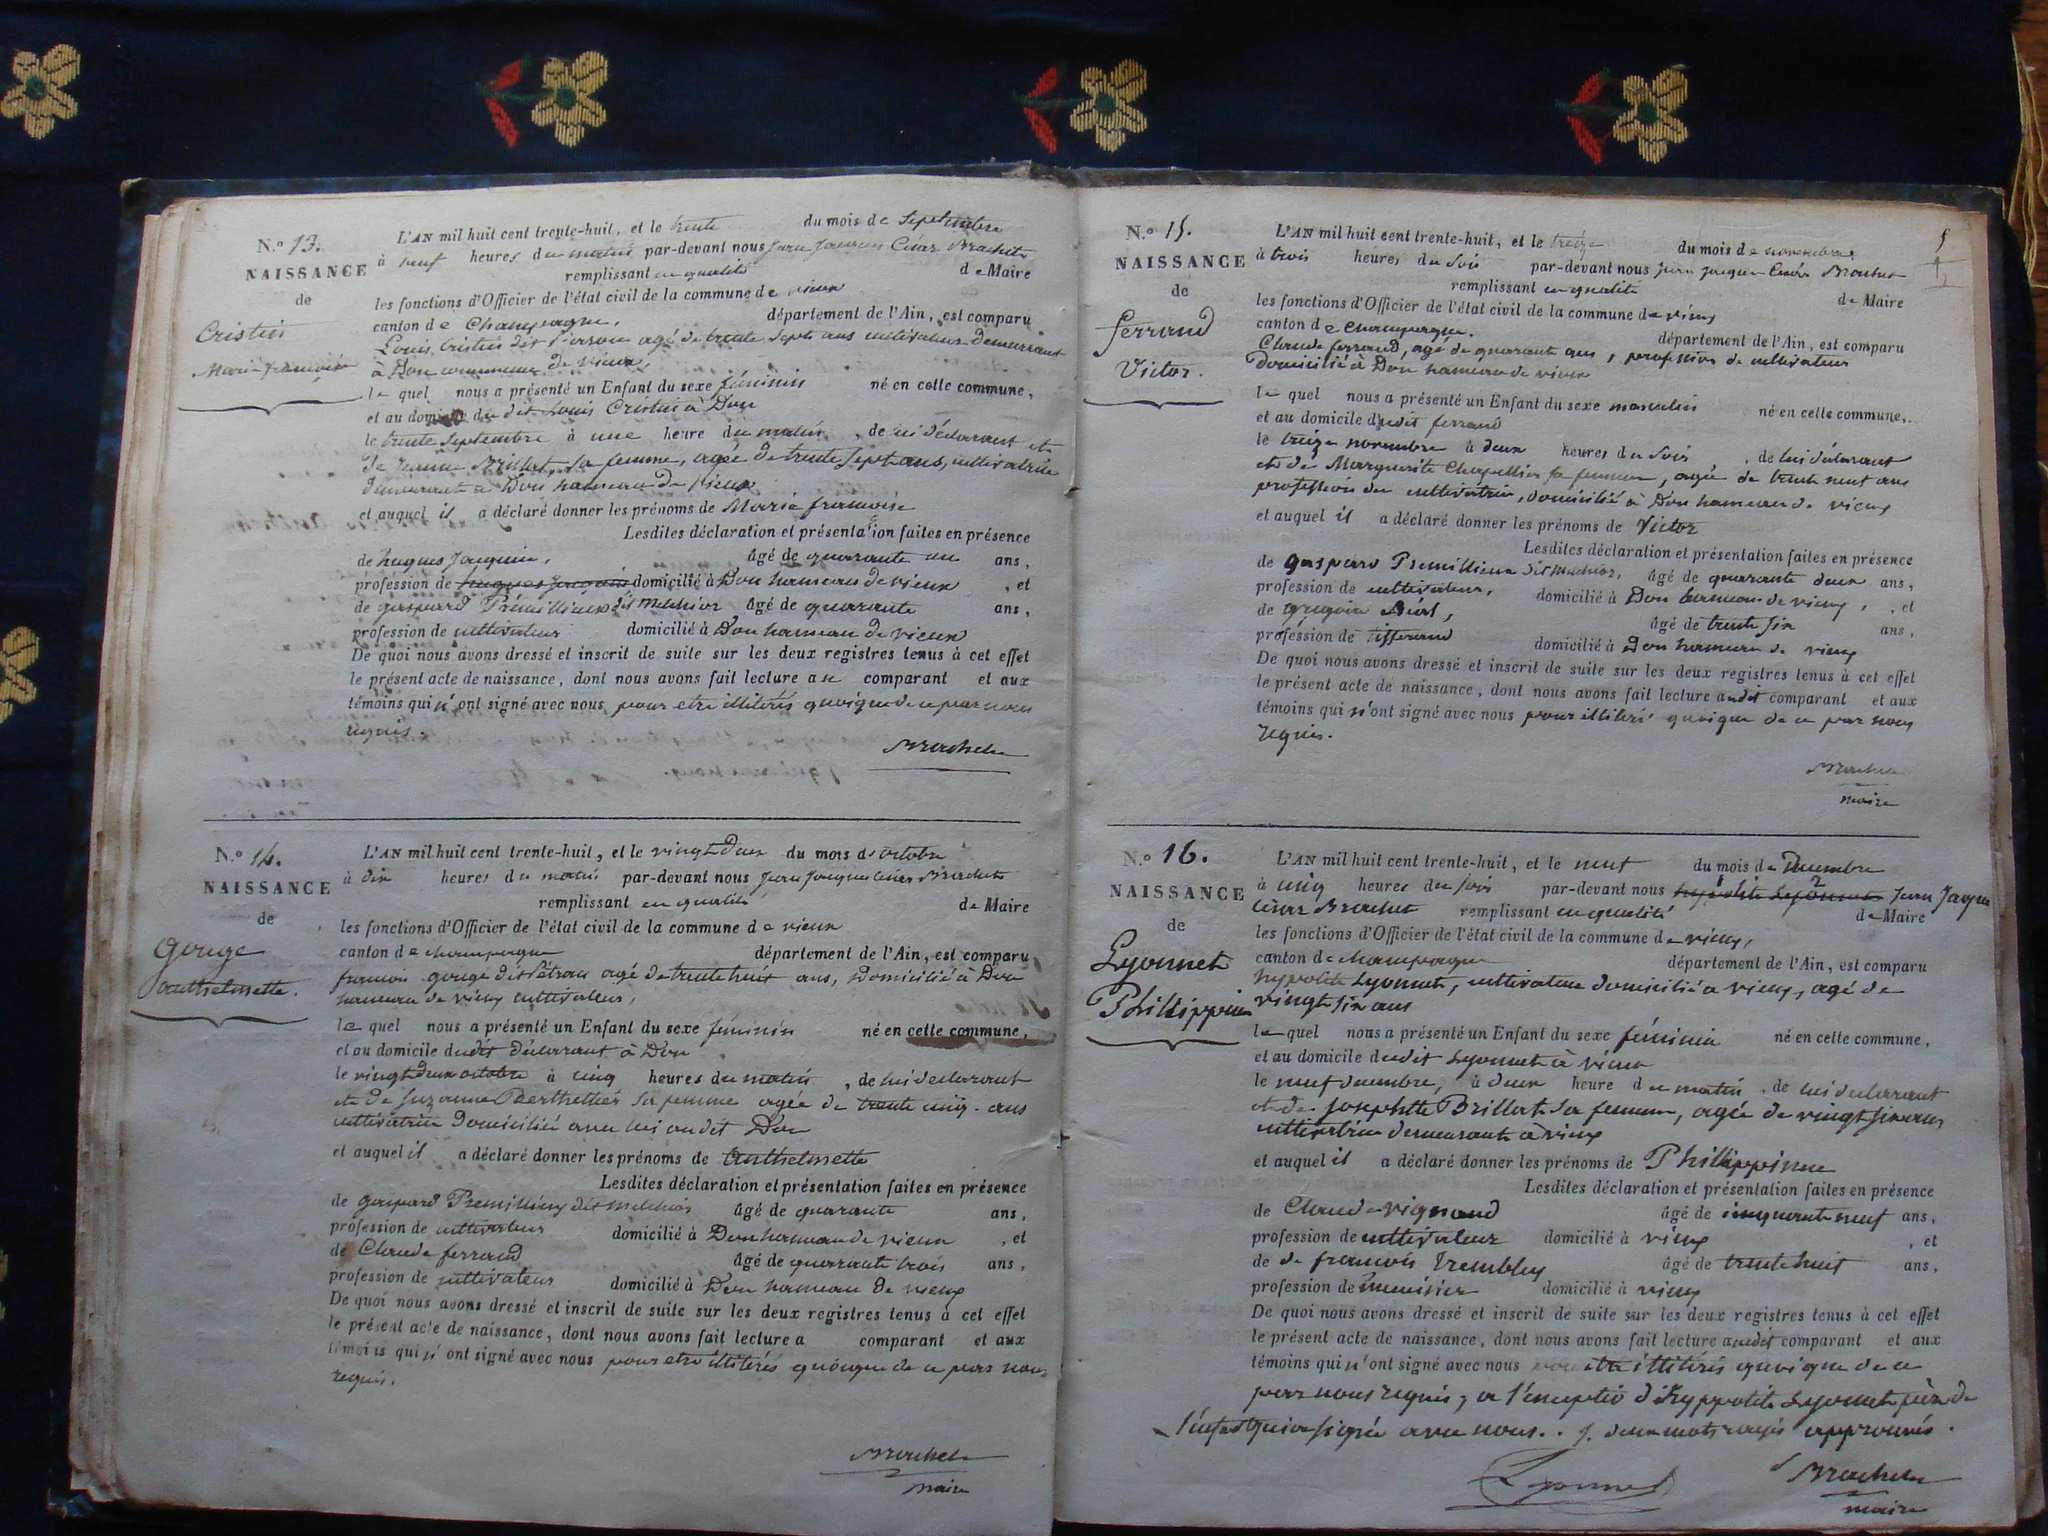 N.o 13.
NAISSANCE
de
Cristin
Marie françoise
L'AN mil huit cent trente-huit, et le trente du mois de septembre
à neuf heures du matin par-devant nous Jean Jacques César Brachet
remplissant en qualité de Maire
les fonctions d'Officier de l'état civil de la commune de vieux
canton de Champagne, département de l'Ain, est comparu
Louis Cristin dit agé de trente sept ans cultivateur demeurant
à Don commune de vieux,
le quel nous a présenté un Enfant du sexe féminin né en cette commune,
et au domicile du dit Louis Cristin à Don
le trente septembre à une heure du matin, de lui déclarant et
de Jeanne Brillat sa femme, agée de trente sept ans, cultivatrice
demeurant à Don hameau de vieux
et auquel il a déclaré donner les prénoms de Marie françoise
Lesdites déclaration et présentation faites en présence
de hugues Jacquin, âgé de quarante un ans,
profession de hugues Jacquin domicilié à Don hameau de vieux, et
de gaspard Prémillieux dit Melchior âgé de quarante ans,
profession de cultivateur domicilié à Don hameau de vieux
De quoi nous avons dressé et inscrit de suite sur les deux registres tenus à cet effet
le présent acte de naissance, dont nous avons fait lecture au comparant et aux
témoins qui n'ont signé avec nous pour etre illitérés quoique de ce par nous
requis.
Brachet
N.o 14.
NAISSANCE
de
Gouge
anthelmette.
L'AN mil huit cent trente-huit, et le vingt deux du mois d'octobre
à dix heures du matin par-devant nous Jean Jacques César Brachet
remplissant en qualité de Maire
les fonctions d'Officier de l'état civil de la commune de vieux
canton de champagne département de l'Ain, est comparu
françois gouge dit agé de trente huit ans, domicilié à Don
hameau de vieux cultivateur,
le quel nous a présenté un Enfant du sexe féminin né en cette commune,
et au domicile dudit déclarant à Don
le vingt deux octobre à cinq heures du matin, de lui déclarant
et de Suzanne Berthellier sa femme agée de trente cinq ans
cultivatrice domiciliée avec lui audit Don
et auquel il a déclaré donner les prénoms de anthelmette
Lesdites déclaration et présentation faites en présence
de gaspard Premillieux dit Melchior âgé de quarante ans,
profession de cultivateur domicilié à Don hameau de vieux, et
de Claude ferrand âgé de quarante trois ans,
profession de cultivateur domicilié à Don hameau de vieux
De quoi nous avons dressé et inscrit de suite sur les deux registres tenus à cet effet
le présent acte de naissance, dont nous avons fait lecture a comparant et aux
témoins qui n'ont signé avec nous pour etre illitérés quoique de ce par nous
requis.
Brachet
maire
N.o 15.
NAISSANCE
de
ferrand
Victor.
L'AN mil huit cent trente-huit, et le treize du mois de novembre
à trois heures du soir par-devant nous Jean Jacques César Brachet
remplissant en qualité de Maire
les fonctions d'Officier de l'état civil de la commune de vieux
canton de champagne. département de l'Ain, est comparu
Claude ferrand, agé de quarante ans, profession de cultivateur
domicilié à Don hameau de vieux
le quel nous a présenté un Enfant du sexe masculin né en cette commune,
et au domicile dudit ferrand
le treize novembre à deux heures du soir, de lui déclarant
et de Marguerite Chapellier sa femme, agée de trente neuf ans
profession de cultivatrice, domicilié à Don hameau de vieux
et auquel il a déclaré donner les prénoms de Victor
Lesdites déclaration et présentation faites en présence
de gaspard Premillieux dit Melchior, âgé de quarante deux ans,
profession de cultivateur, domicilié à Don hameau de vieux, et
de grégoire âgé de trente six ans,
profession de tisserand domicilié à Don hameau de vieux
De quoi nous avons dressé et inscrit de suite sur les deux registres tenus à cet effet
le présent acte de naissance, dont nous avons fait lecture audit comparant et aux
témoins qui n'ont signé avec nous pour illitéré quoique de ce par nous
requis.
Brachet
maire
N.o 16.
NAISSANCE
de
Lyonnet
Phillippine
L'AN mil huit cent trente-huit, et le neuf du mois de Décembre
à cinq heures du soir par-devant nous hypolite Lyonnet Jean Jacques
César Brachet remplissant en qualité de Maire
les fonctions d'Officier de l'état civil de la commune de vieux,
canton de champagne département de l'Ain, est comparu
hypolite Lyonnet, cultivateur domicilié à vieux, agé de
vingt six ans
le quel nous a présenté un Enfant du sexe féminin né en cette commune,
et au domicile dudit Lyonnet à vieux
le neuf décembre, à deux heure du matin, de lui déclarant
et de Josephtte Brillat sa femme, agée de vingt six ans
cultivatrice demeurante à vieux
et auquel il a déclaré donner les prénoms de Phillippinne
Lesdites déclaration et présentation faites en présence
de Claude vignand âgé de cinquante neuf ans,
profession de cultivateur domicilié à vieux, et
de de françois Trembley âgé de trente huit ans,
profession de menuisier domicilié à vieux
De quoi nous avons dressé et inscrit de suite sur les deux registres tenus à cet effet
le présent acte de naissance, dont nous avons fait lecture audit comparant et aux
témoins qui n'ont signé avec nous pour etre illitérés quoique de ce
par nous requis, a l'exceptio d'hyppolite Lyonnet père de
l'enfant qui a signé avec nous. deux mots rayés approuvés.
Lyonnet
Brachet
maire